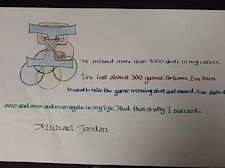 I've missed more than 9000 shots in my career.
I've lost almost 300 games. 26 times, I've been
trusted to take the game winning shot and missed. I've failed
over and over and over again in my life. And that is why I succeed.
Michael Jordan